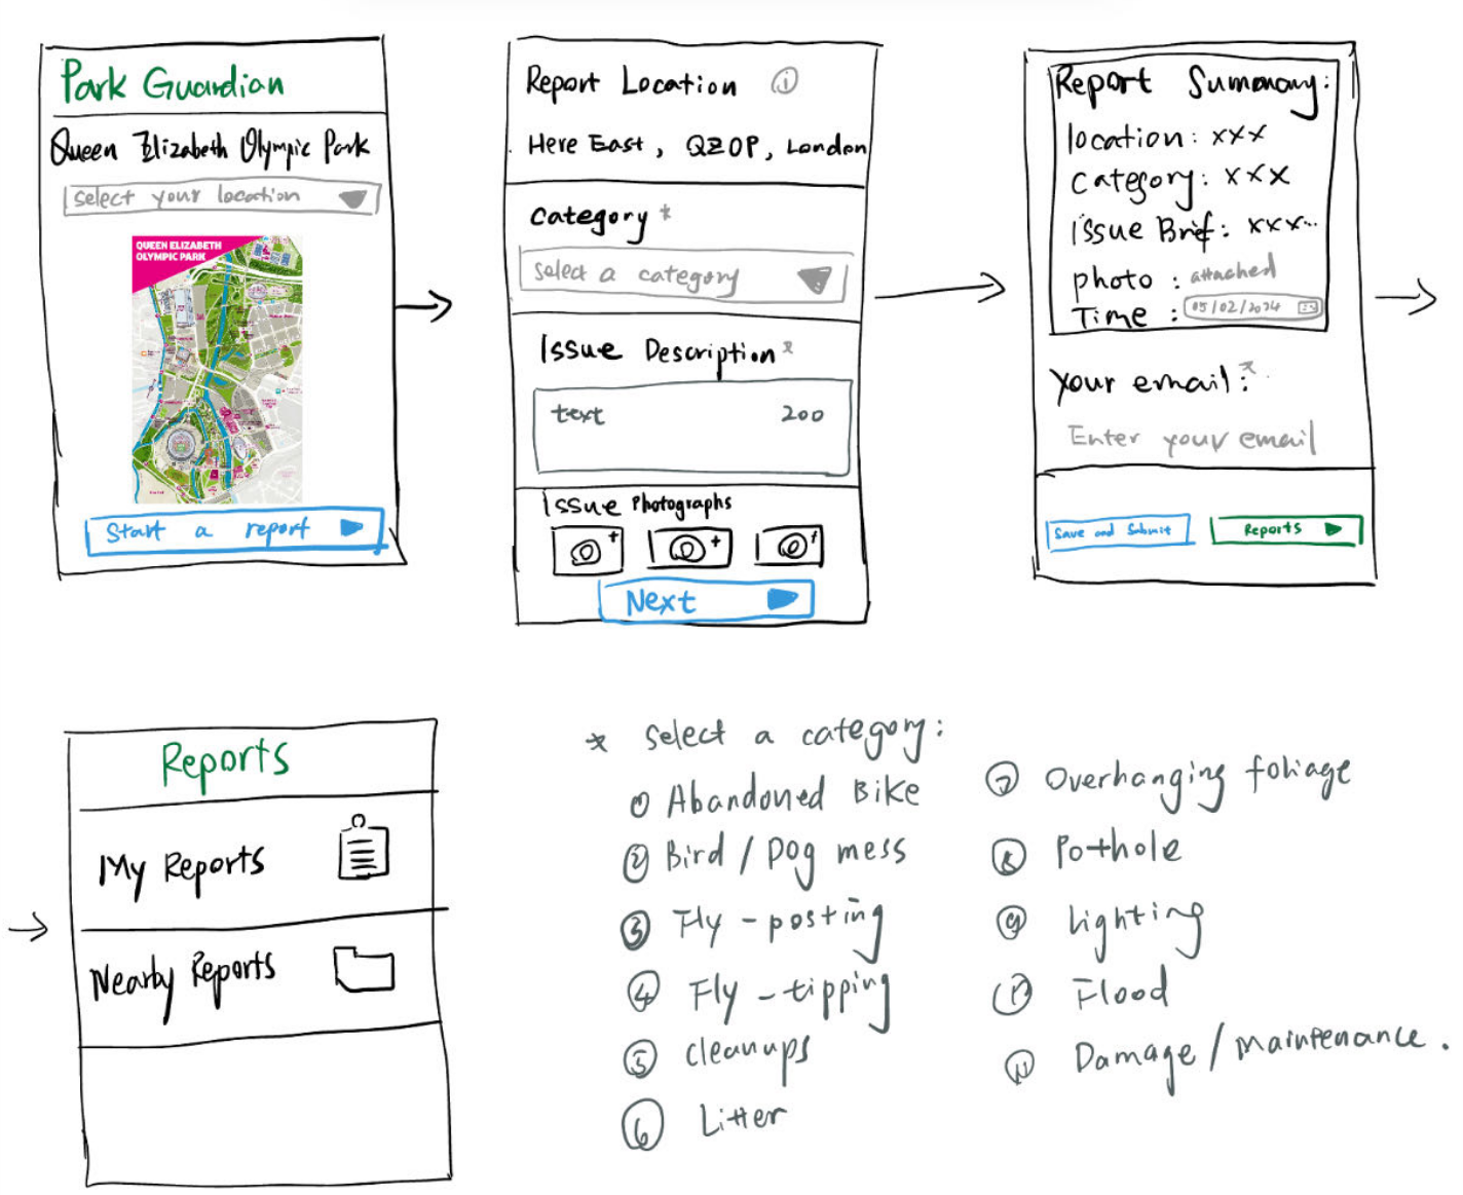 Park Guardian
Queen Elizabeth Olympic Park
select your location
QUEEN ELIZABETH
OLYMPIC PARK
Start a report
Report Location i
Here East, QZOP, London
Category *
Select a category
Issue Description *
text 200
Issue Photographs
+ + +
Next
Report Summary:
location: xxx
Category: xxx
Issue Brief: xxx...
photo : attached
Time : 05/02/2024
Your email: *
Enter your email
Save and Submit
Reports
Reports
My Reports
Nearby Reports
* Select a category:
① Abandoned Bike
② Bird / Dog mess
③ Fly-posting
④ Fly-tipping
⑤ Cleanups
⑥ Litter
⑦ Overhanging foliage
⑧ Pothole
⑨ Lighting
⑩ Flood
⑪ Damage / Maintenance.